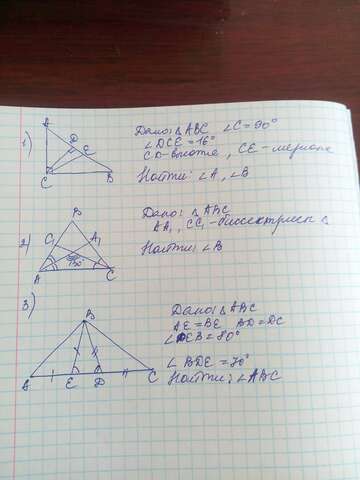 1)
A
D
E
C
B
Дано: △ABC, ∠C=90°
∠DCE=16°
CD-высота, CE-медиана
Найти: ∠A, ∠B
2)
B
C₁
A₁
A
C
Дано: △ABC
AA₁, CC₁-биссектрисы
Найти: ∠B
3)
B
A
E
D
C
Дано: △ABC
AE=BE BD=DC
∠DEB=80°
∠BDE=70°
Найти: ∠ABC